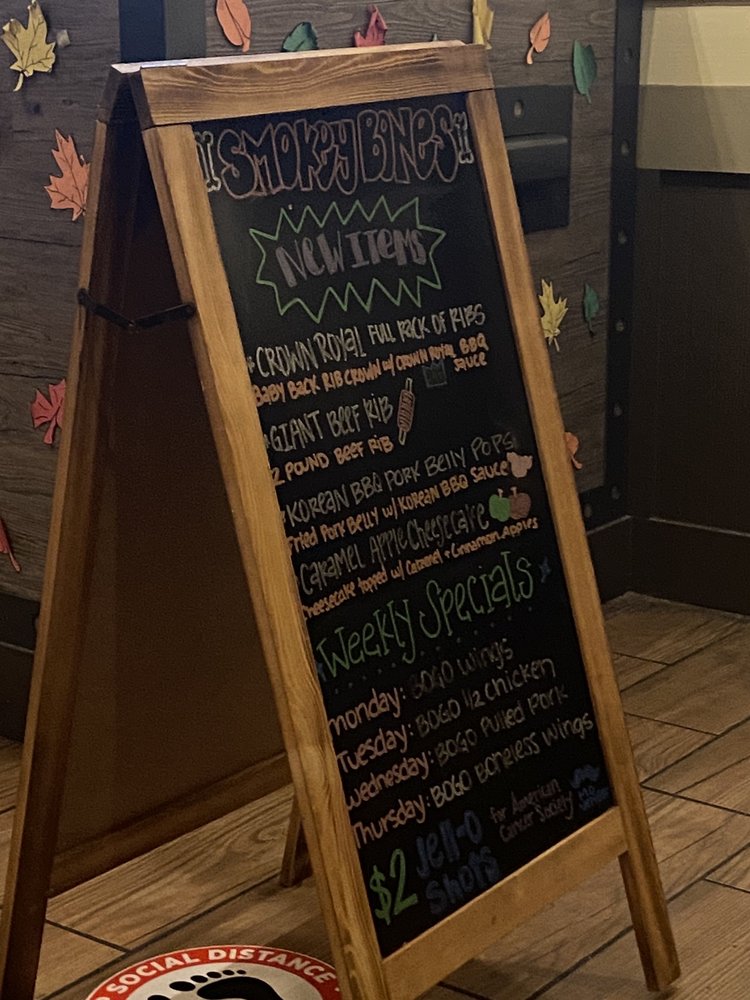 SMOKEY BONES
NEW ITEMS
CROWN ROYAL FULL RACK OF RIBS
BABY BACK RIB CROWN W/ CROWN ROYAL BBQ
SAUCE
GIANT BEEF RIB
2 POUND BEEF RIB
KOREAN BBQ PORK BELLY POPS
Fried Pork Belly w/ Korean BBQ Sauce
Caramel Apple Cheesecake
Cheesecake topped w/ Caramel + Cinnamon Apples
Weekly Specials
monday: BOGO wings
Tuesday: BOGO 1/2 Chicken
Wednesday: BOGO Pulled Pork
Thursday: BOGO Boneless Wings
$2 Jell-O Shots
for American
Cancer Society
SOCIAL DISTANCE